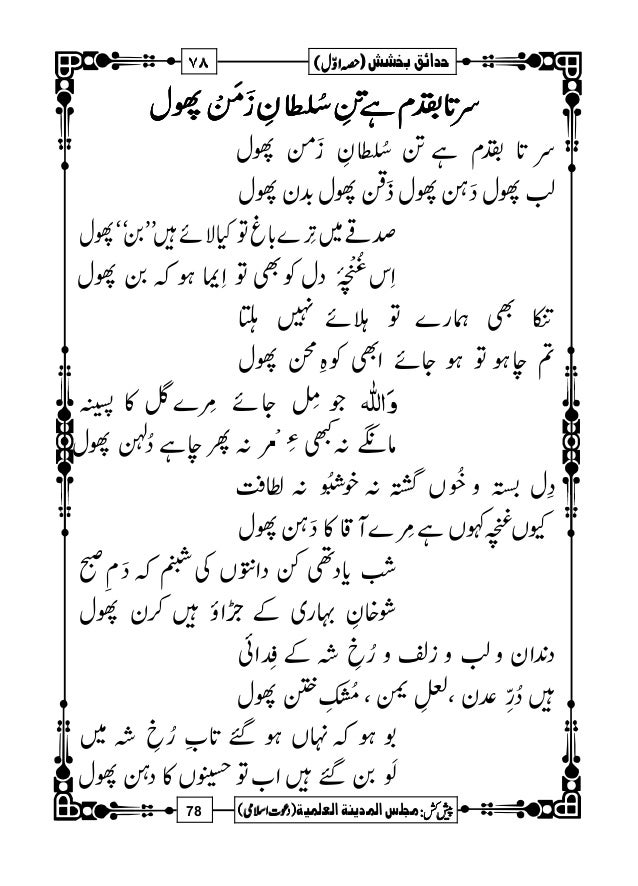 حدائق بخشش (حصہ اوّل)
۷۸
سر تا بقدم ہے تنِ سُلطانِ زَمَنْ پھول
سر تا بقدم ہے تن سُلطانِ زَمن پھول
لب پھول دَہن پھول ذَقن پھول بدن پھول
صدقے میں تِرے باغ تو کیا لائے ہیں ’’بن‘‘ پھول
اِس غُنْچۂ دل کو بھی تو اِیما ہو کہ بن پھول
تنکا بھی ہمارے تو ہلائے نہیں ہلتا
تم چاہو تو ہو جائے ابھی کوہِ محن پھول
وَاللّٰہ جو مِل جائے مِرے گل کا پسینہ
مانگے نہ کبھی عِطْر نہ پھر چاہے دُلہن پھول
دِل بستہ و خُوں گشتہ نہ خوشبُو نہ لطافت
کیوں غنچہ کہوں ہے مِرے آقا کا دَہن پھول
شب یاد تھی کن دانتوں کی شبنم کہ دَمِ صبح
شوخانِ بہاری کے جڑاؤ ہیں کرن پھول
دندان و لب و زلف و رُخِ شہ کے فِدائی
ہیں دُرِّ عدن ، لعلِ یمن ، مُشکِ ختن پھول
بو ہو کہ نہاں ہو گئے تابِ رُخِ شہ میں
لَو بن گئے ہیں اب تو حسینوں کا دہن پھول
پیش کش: مجلس المدینۃ العلمیۃ (دعوت اسلامی)
78